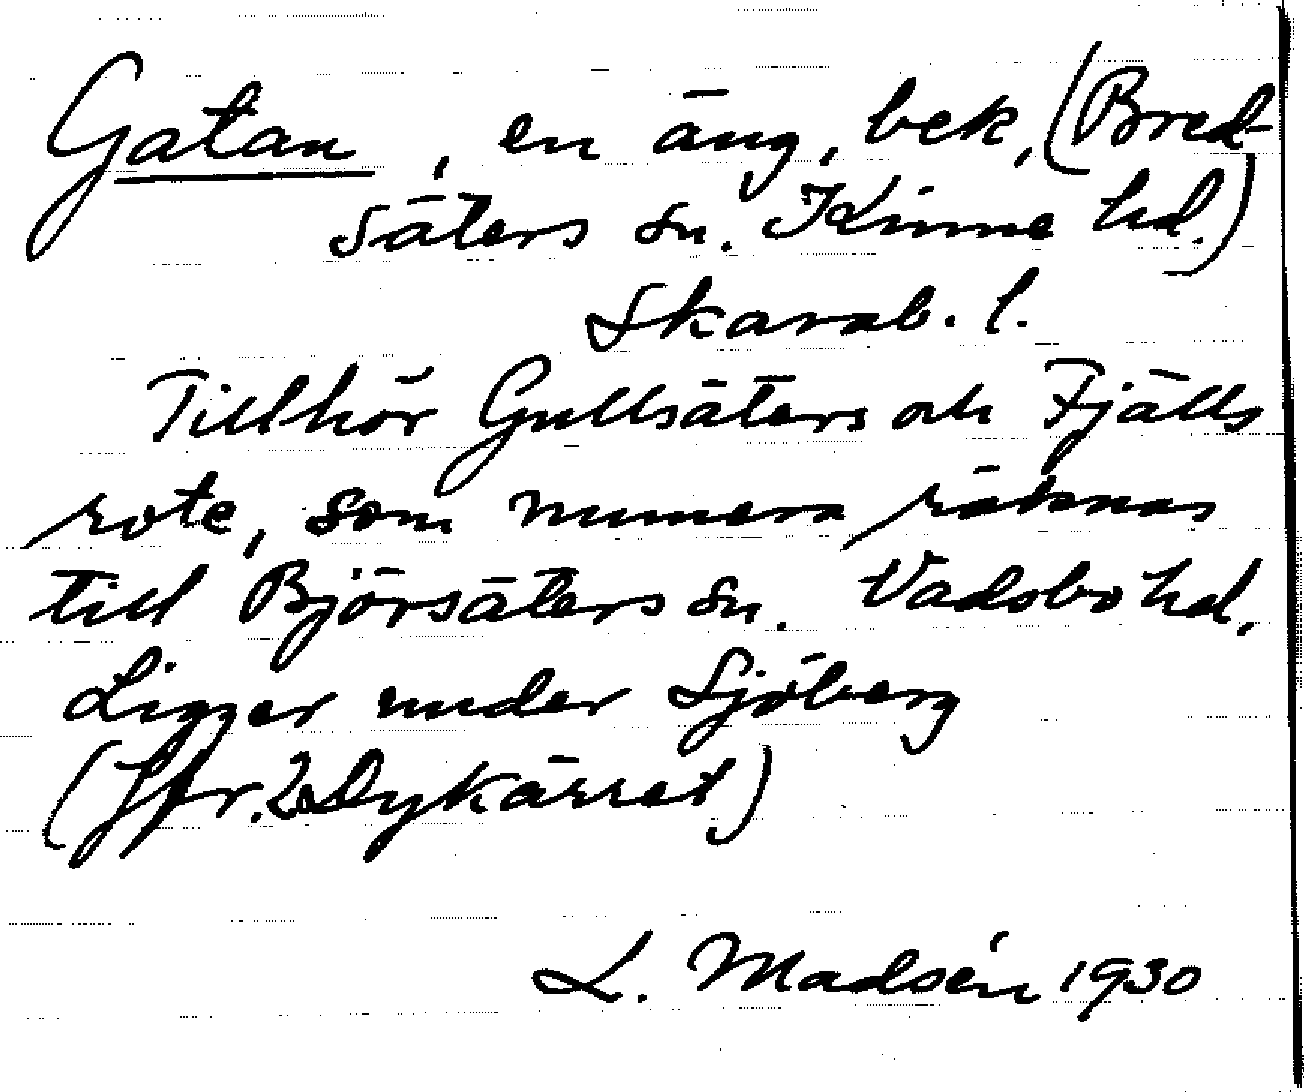 Gatan, en äng, bek, (Bred-
säters sn. Kinne hd.)
Skarab. l.
Tillhör Gullsäters och Fjälls
rote, som numera räknas
till Björsäters sn. Vadsbo hd.
Ligger under Sjöberg
(Jfr. 2 Dykärret)
L. Madsén 1930